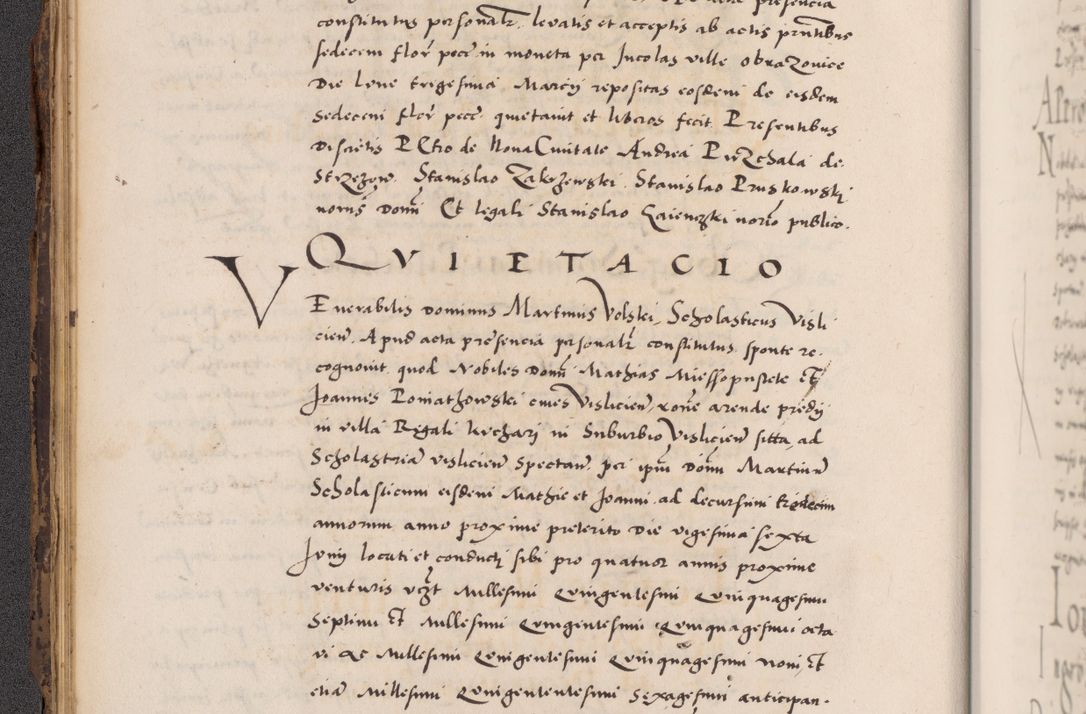 constitutus personalr̃. levatis et acceptis ab actis prñtibus
sedecem flor̃ pecc̃ in moneta per Incolas ville obrazovice
Die lune trigesima Marcij repositas eosdem de eisdem
sedecem flor̃ pecc̃ quietavit et liberos fecit. Presentibus
Discretis Petro de Nova Civitate Andrea Przechala de
Strzezow. Stanislao Zakrzewski. Stanislao Pruskowski
Domi Et legali Stanislao norio publico.
QVIETACIO
VEnerabilis Dominus Martinus Volski, Scholasticus Visli
cien̄. Apud acta presencia personalr̃ constitutus sponte re-
cognovit. quod Nobiles Domi Mathias Miessopustete et
Joannes Poniathowski cives Vislicien̄, rone arende predij
in villa Regali kuchari in Suburbio Vislicien̄ sitta, ad
Scholastriam vislicien̄ spectan̄. per ipm̄ Domm Martinum
Scholasticum eisdem Mathie et Joanni. ad decursum tredecim
annorum anno proxime preterito Die vigesima sexta
Junij locati et conducti sibi pro quatuor annis proxime
venturis vzt Millesimi Quingentesimi Quinquagesimi
Septimi et Millesimi Quingentesimi Quinquagesimi octa
vi ac Millesimi Quingentesimi Quinquagesimi noni, et
etiam Millesimi Quingententesimi Sexagesimi anticipan-